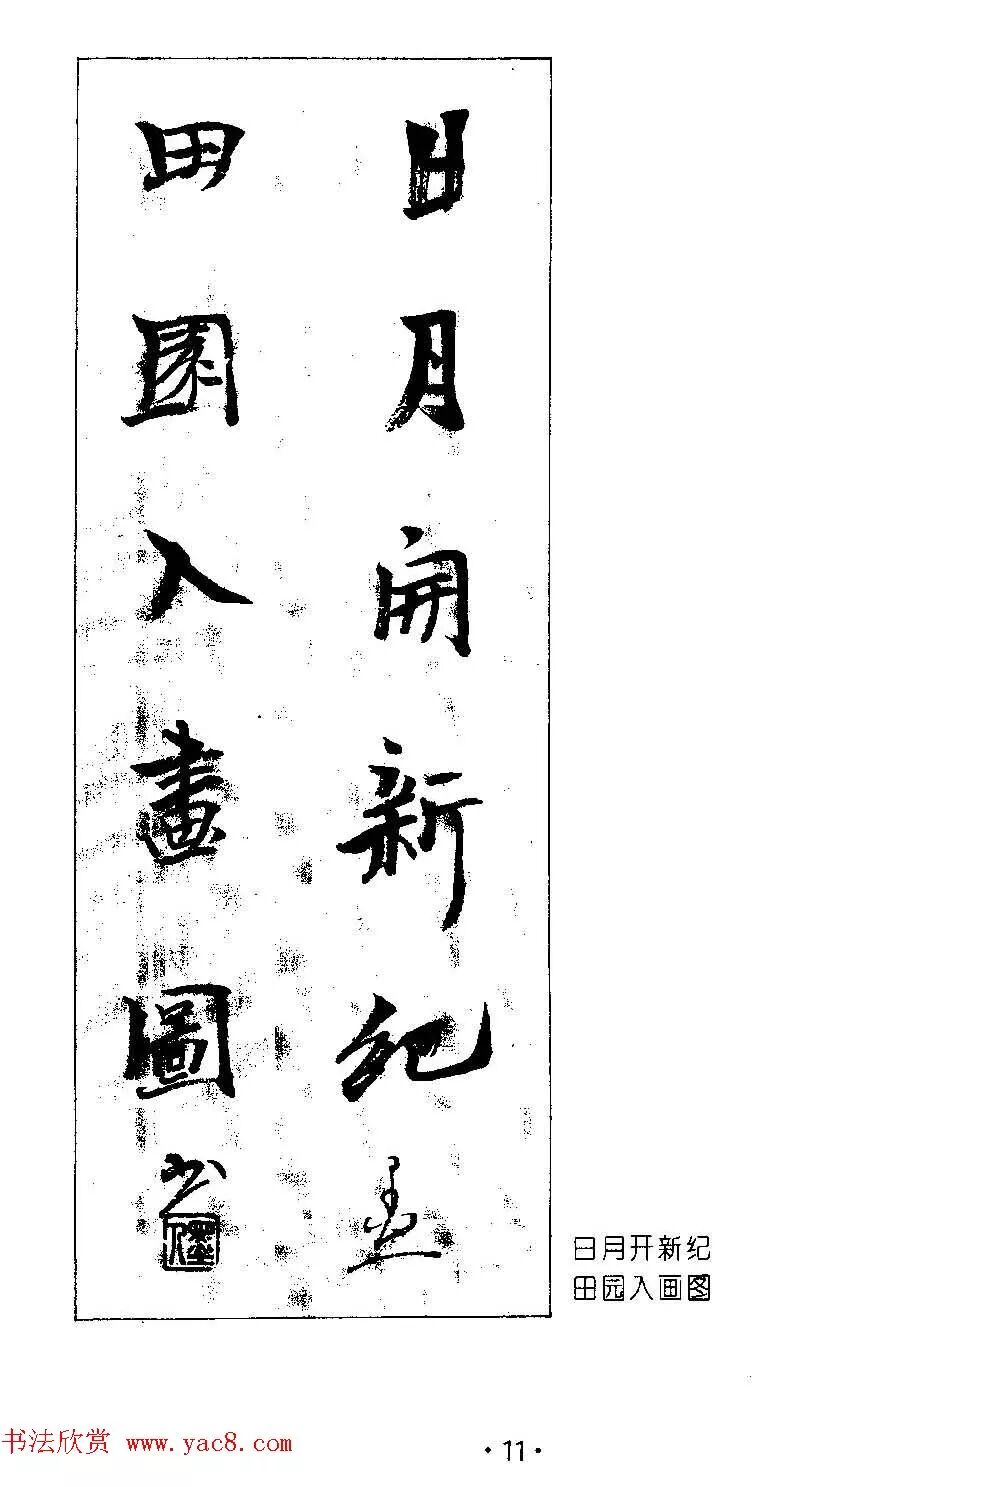 日月开新紀
田園入畫圖
书
日月开新纪
田园入画图
书法欣赏 www.yac8.com
·11·